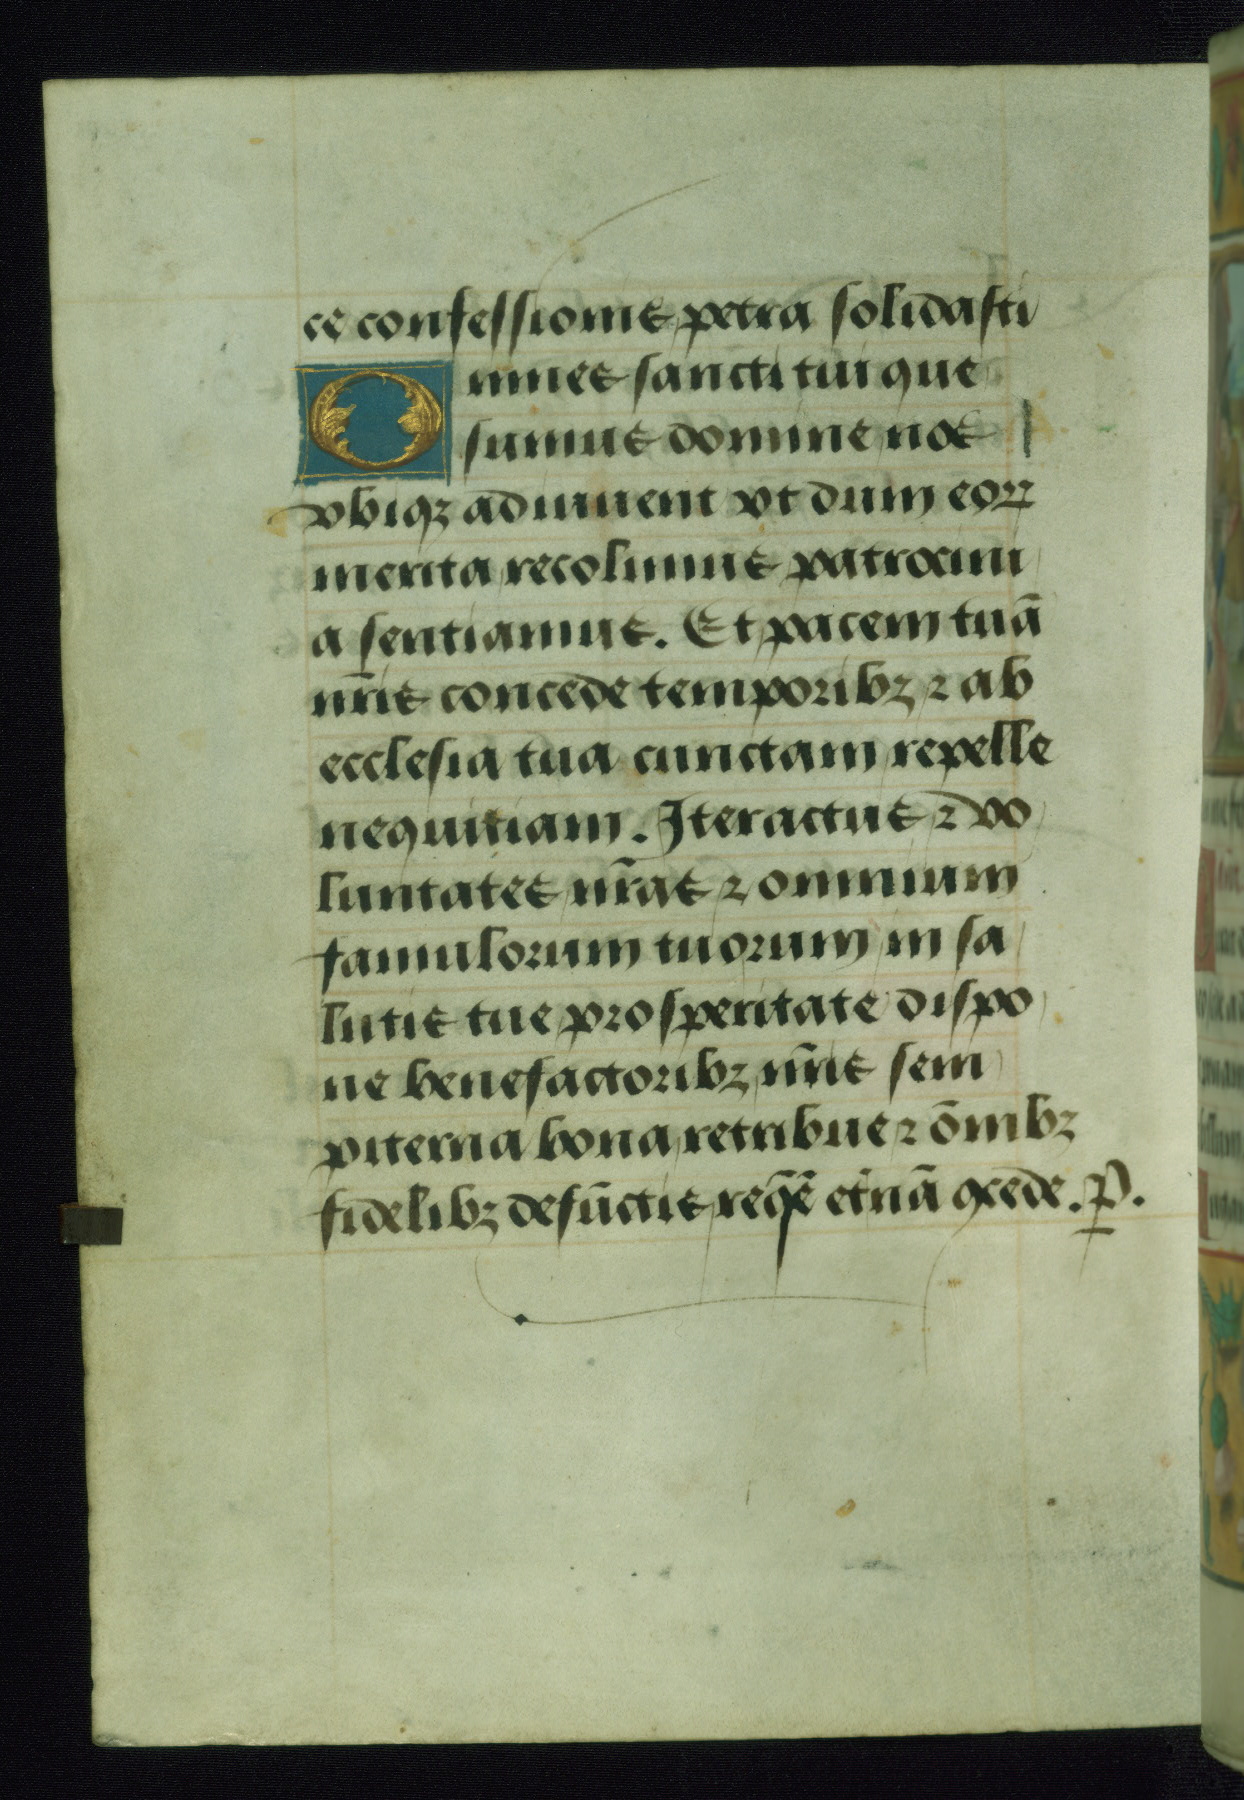 ce confessionis petra solidasti
Omnes sancti tui que
sumus domine nos
vbiqz adiuuent vt dum eoꝝ
merita recolimus patrocini
a sentiamus. Et pacem tuā
nr̄is concede temporibz ⁊ ab
ecclesia tua cunctam repelle
nequitiam. Iter actus ⁊ vo
luntates nr̄as ⁊ omnium
famulorum tuorum in sa
lutis tue prosperitate dispo
ne benefactoribz nr̄is sem
piterna bona retribue ⁊ om̄ibz
fidelibz defūctis reqē et̄nā ꝯcede. P.